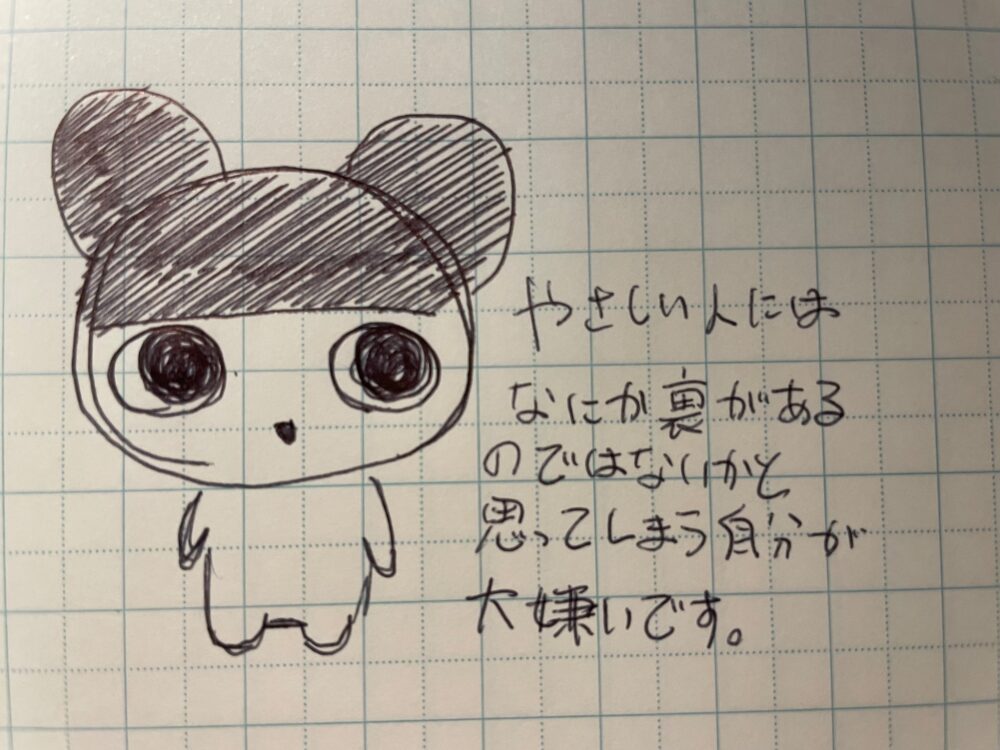 やさしい人には
なにか裏がある
のではないかと
思ってしまう自分が
大嫌いです。